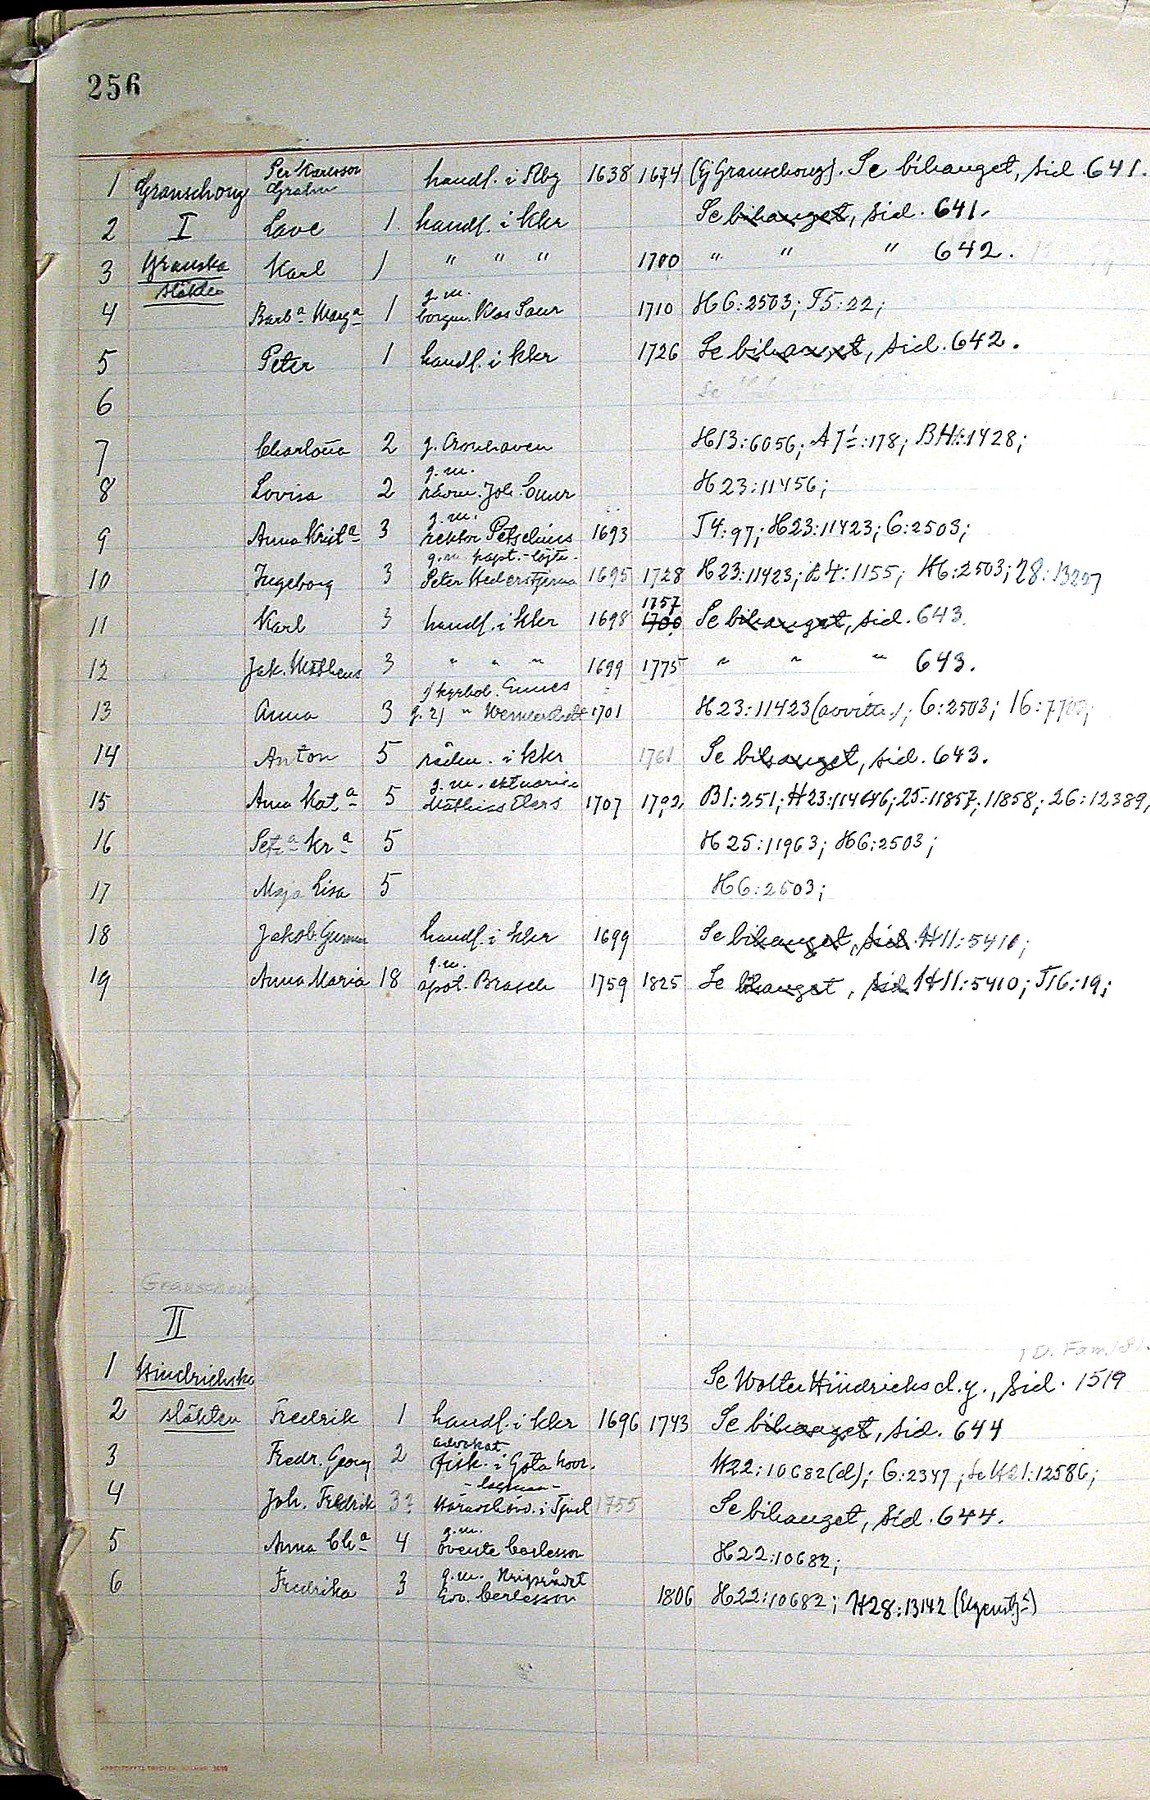 256
1 Granschoug Per Karlsson Grahn handl. i Kbg 1638 1674 (Ej Granschoug). Se bihanget, sid. 641.
2 I Lave 1. handl. i kkr Se bihanget, sid. 641.
3 Granska Karl 1 " " " 1700 " " " 642.
släkten
4 Barbª Margª 1 g.m. borgm. Klas 1710 H6:2503; T5:22;
5 Peter 1 handl. i kkr 1726 Se bihanget, sid. 642.
6
7 Charlotta 2 g. Cronhaven H13:6056; :178; BH:1428;
8 Lovisa 2 g.m. rådm. Joh. H23:11456;
9 Anna Kristª 3 g.m. rektor Petschius 1693 T4:97; H23:11423; 6:2503;
10 Ingeborg 3 g.m. kapt.-löjtn. Peter Hederstjerna 1695 1728 H23:11423; 24:1155; H6:2503; 28:13227
11 Karl 3 handl. i kkr 1698 1757 1700 Se bihanget, sid. 643.
12 Jak. Matheus 3 " " " 1699 1775 " " " 643.
13 Anna 3 1) kyrkoh. Ennes g. 2) " Wennerstedt 1701 H23:11423 6:2503; 16:
14 Anton 5 rådm. i kkr 1761 Se bihanget, sid. 643.
15 Anna Kat.ª 5 g.m. aktuarien Mathias Elers 1707 1792 B1:251; H23:11446; 25:11857; 11858; 26:12389,
16 Petª- Krª 5 H25:11963; H6:2503;
17 Maja Lisa 5 H6:2503;
18 Jakob Gunnar handl. i kkr 1699 Se bihanget, sid. H11:5410;
19 Anna Maria 18 g.m. apot. Brasch 1759 1825 Se bihanget, sid H11:5410; T16:19;
Granschoug
II
1 D. Fam
1 Hindrichska Se Wolter Hindrichs d.y., sid. 1519
2 släkten Fredrik 1 handl. i kkr 1696 1743 Se bihanget, sid. 644
3 Fredr. Georg 2 advokat fisk. i Göta hovr. H22:10682(d); 6:2347; Se H21:12586;
4 Joh. Fredrik 3? - lagman - Häradshöv. i Tjust 1755 Se bihanget, sid. 644.
5 Anna Chª 4 g.m. överste Carlesson H22:10682;
6 Fredrika 3 g.m. Krigsrådet Edv. Carlesson 1806 H22:10682; H28:13142